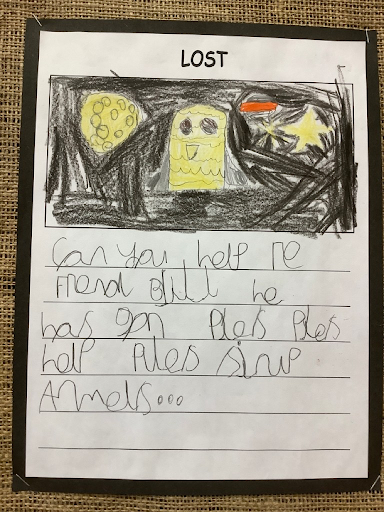 LOST
Can you help me
Friend Bill he
has gon Ples Ples
help Ples sinup
Anmels...